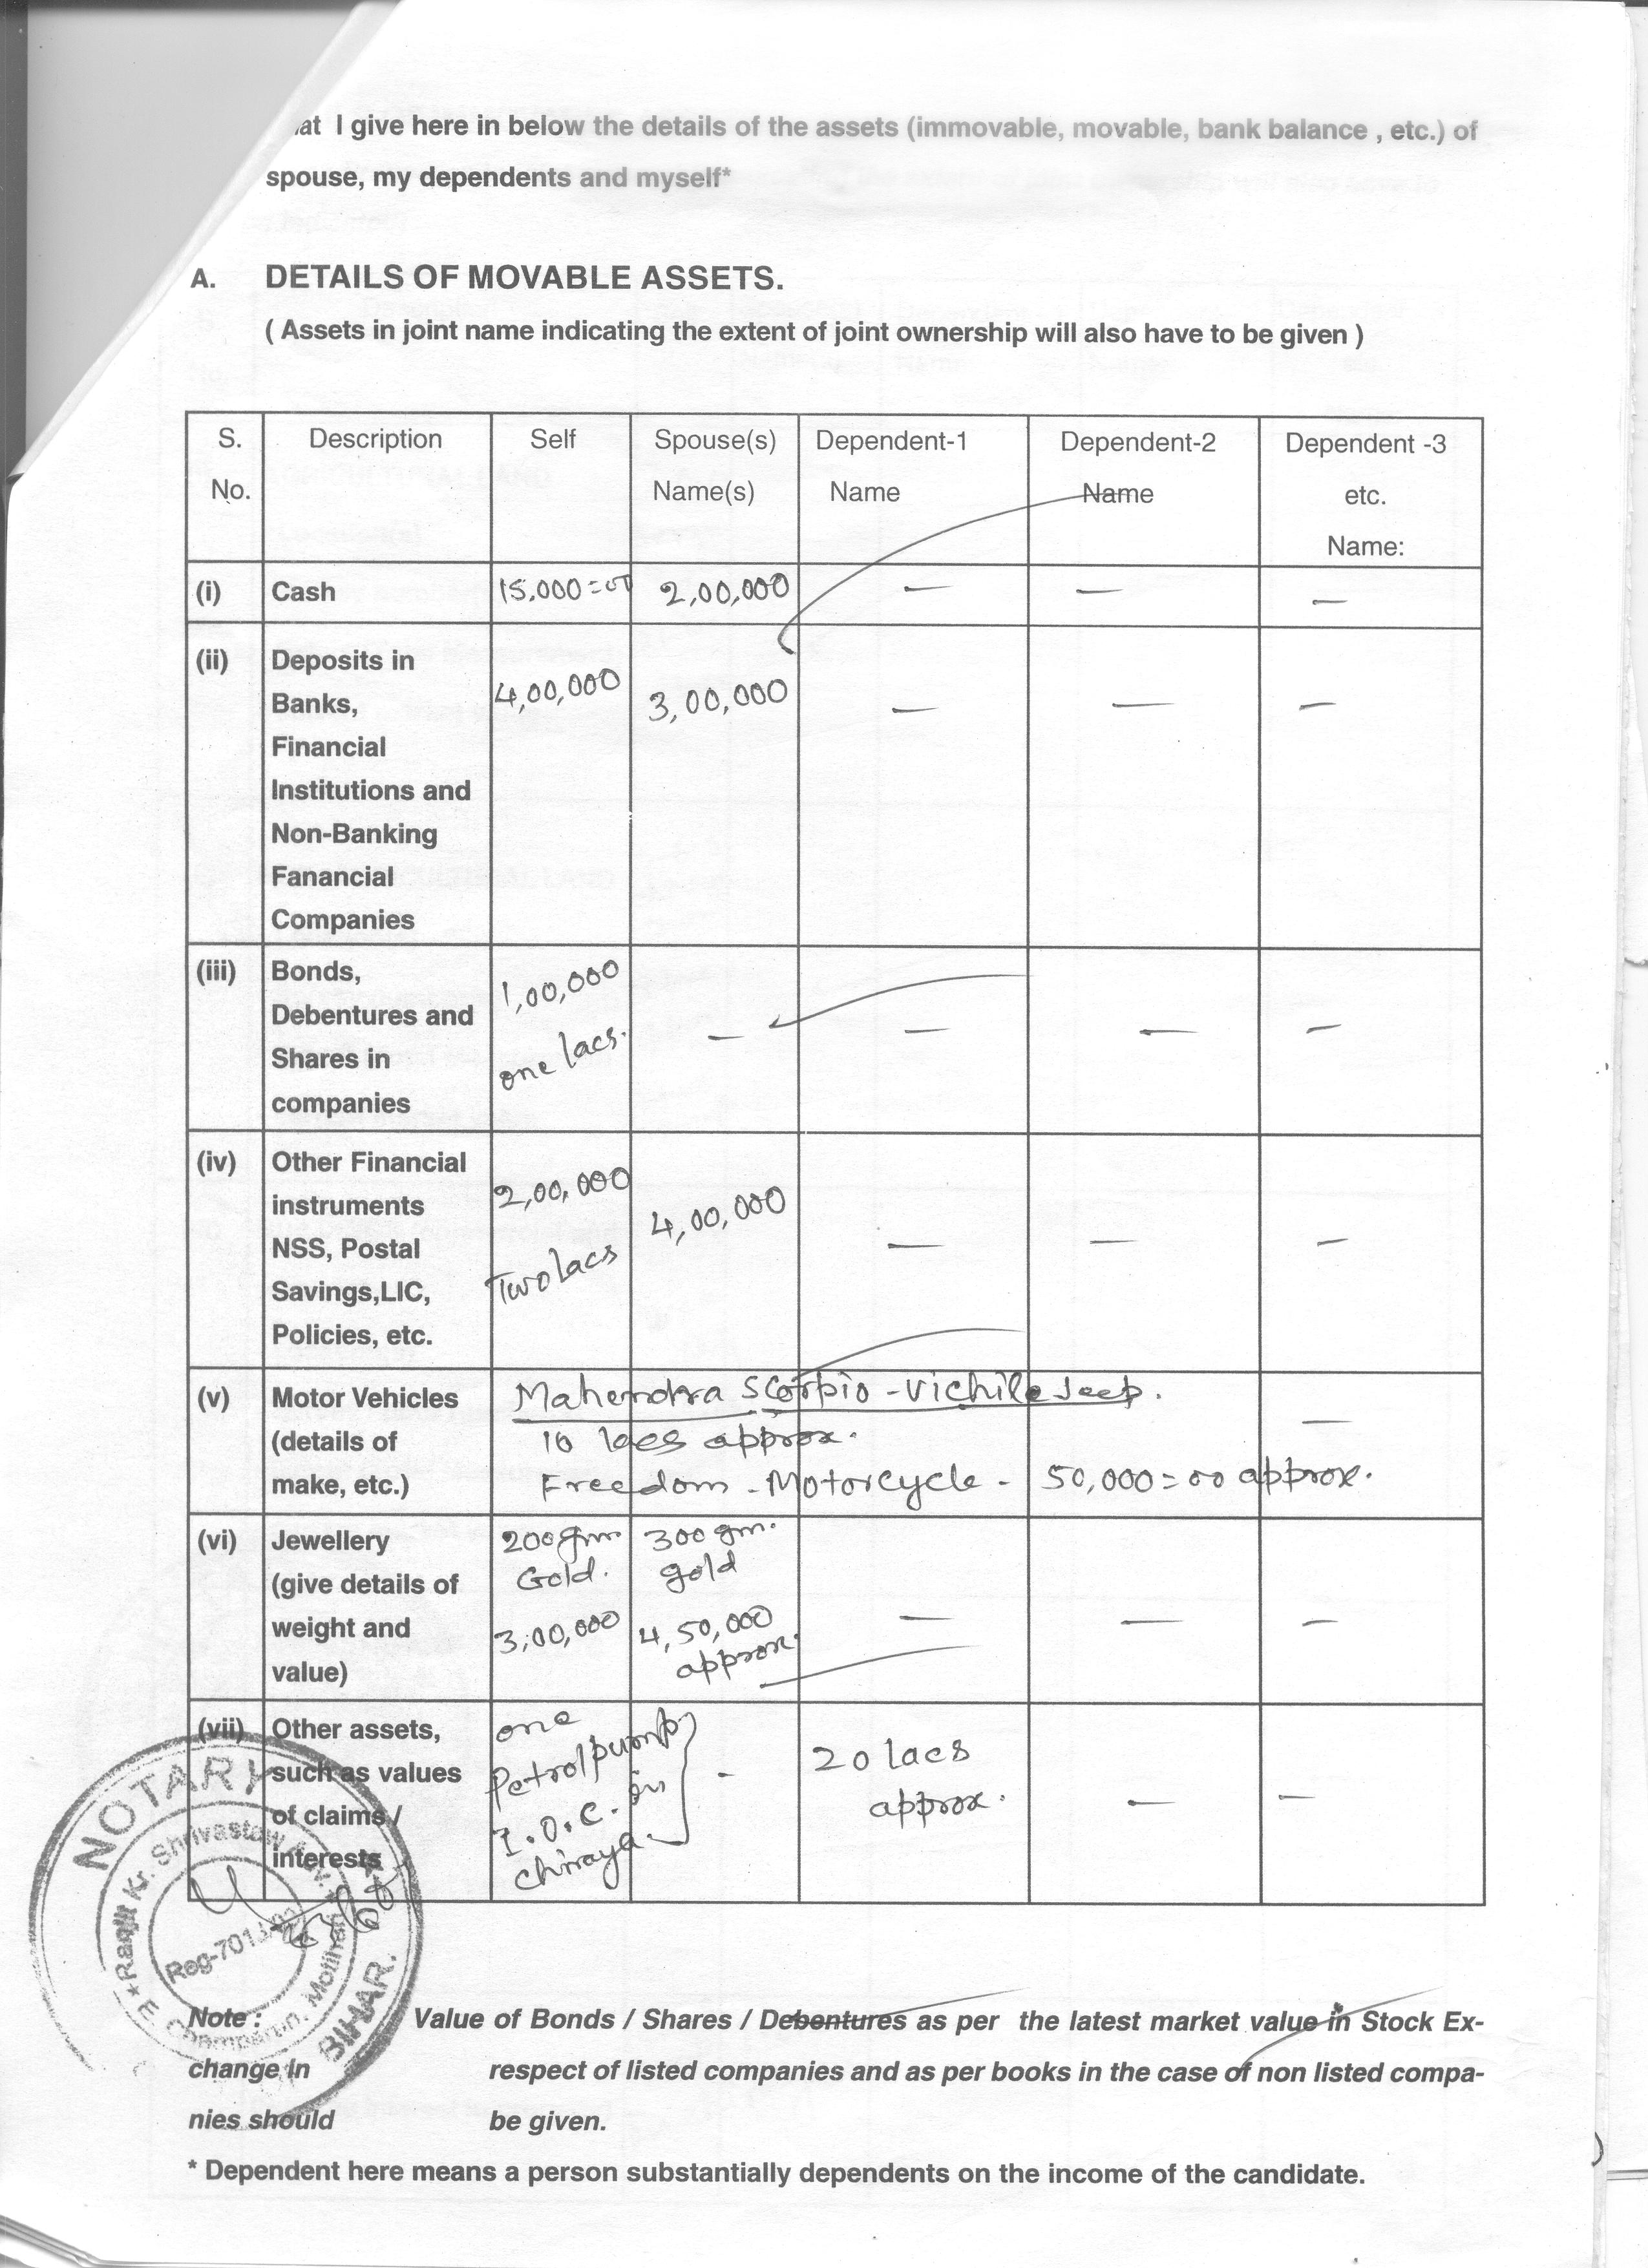 at I give here in below the details of the assets (immovable, movable, bank balance , etc.) of
spouse, my dependents and myself*
A. DETAILS OF MOVABLE ASSETS.
( Assets in joint name indicating the extent of joint ownership will also have to be given )
S. No. Description Self Spouse(s) Name(s) Dependent-1 Name Dependent-2 Name Dependent -3 etc. Name:
(i) Cash 15,000=00 2,00,000 — — —
(ii) Deposits in 4,00,000 3,00,000 — — —
Banks,
Financial
Institutions and
Non-Banking
Fanancial
Companies
(iii) Bonds, 1,00,000
Debentures and one lacs. — — — —
Shares in
companies
(iv) Other Financial 2,00,000 4,00,000
instruments
NSS, Postal Two lacs — — —
Savings,LIC,
Policies, etc.
(v) Motor Vehicles Mahendra Scorpio - Vichile Jeep. —
(details of 10 lacs approx.
make, etc.) Freedom - Motorcycle - 50,000=00 approx.
(vi) Jewellery 200 gm 300 gm.
(give details of Gold. gold
weight and 3,00,000 4,50,000 — — —
value) approx.
(vii) Other assets, one
such as values Petrol pump - 20 lacs
of claims / I.O.C. in approx. — —
interests chiraya.
NOTARY
Raqjit Kr. Shrivastaw Adv.
Reg-701
E. Champaran, Motihari
BIHAR.
Note : Value of Bonds / Shares / Debentures as per the latest market value in Stock Ex-
change in respect of listed companies and as per books in the case of non listed compa-
nies should be given.
* Dependent here means a person substantially dependents on the income of the candidate.